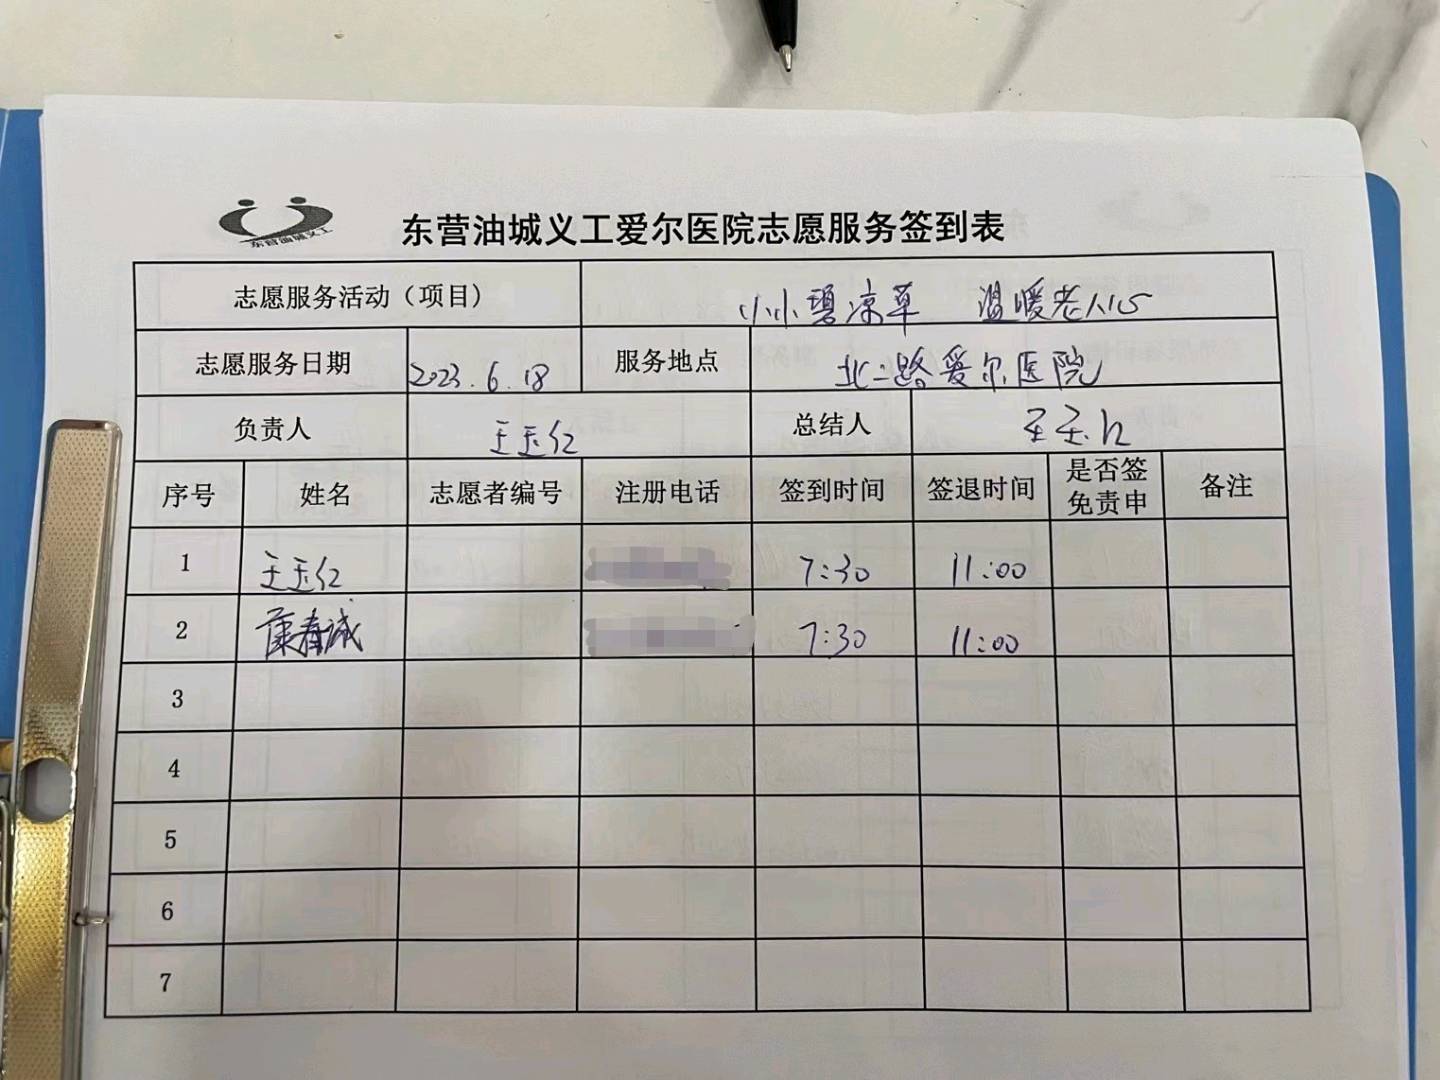 东营油城义工
东营油城义工爱尔医院志愿服务签到表
志愿服务活动（项目） 小小碧凉草 温暖老人心
志愿服务日期 2023.6.18 服务地点 北二路爱尔医院
负责人 王玉仁 总结人 王玉仁
序号 姓名 志愿者编号 注册电话 签到时间 签退时间 是否签免责申 备注
1 王玉仁 7:30 11:00
2 康春诚 7:30 11:00
3
4
5
6
7